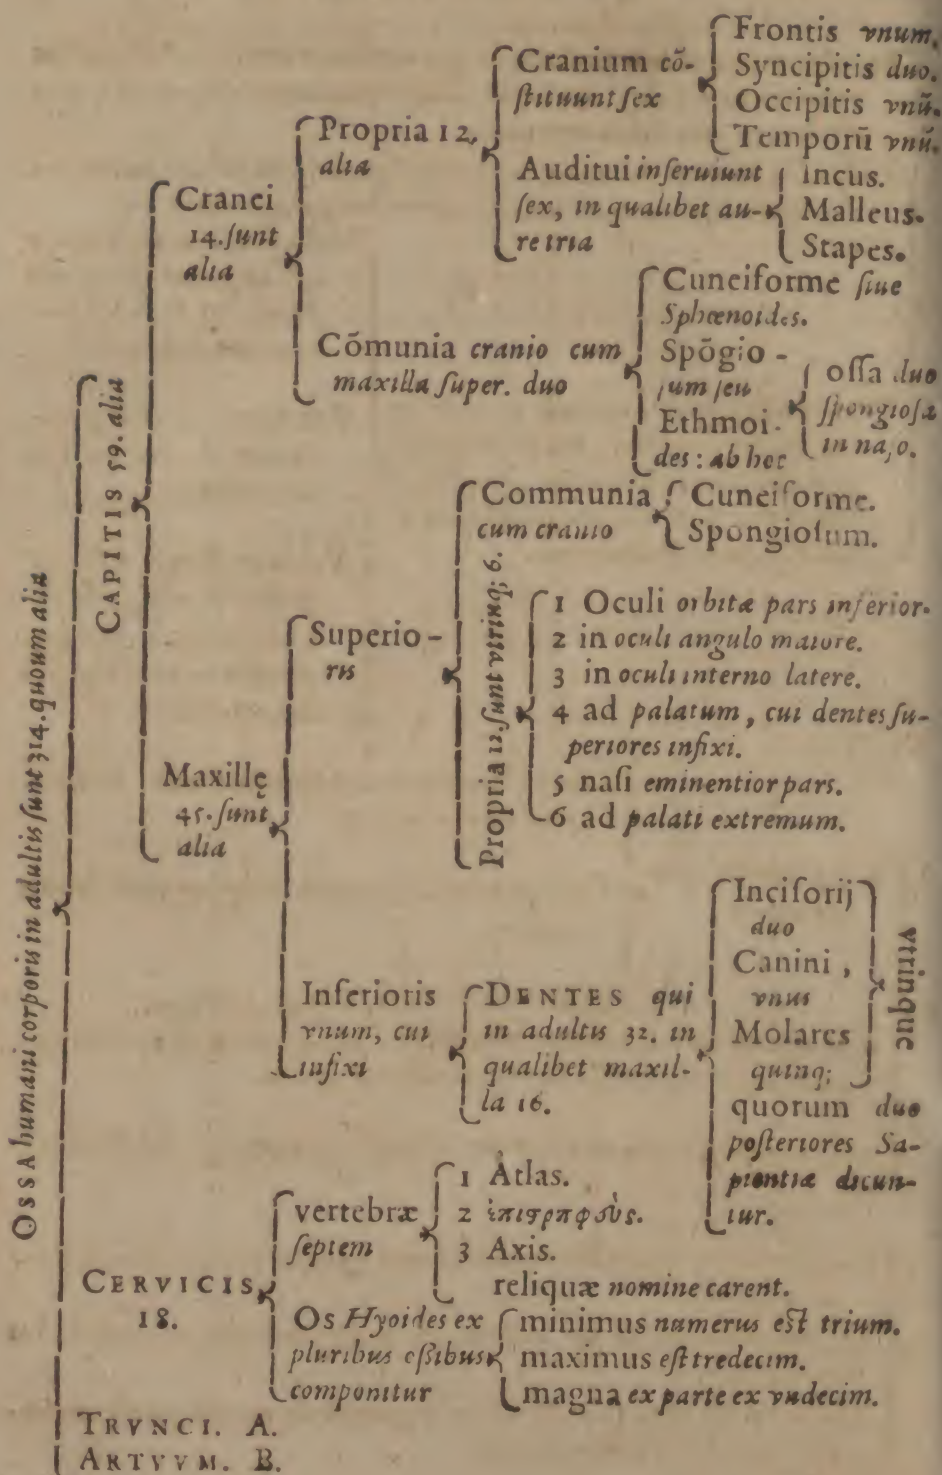 OSSA humani corporis in adultis sunt 314. quoum alia
CAPITIS 59. alia
Cranei
14. sunt
alia
Propria 12.
alia
Cranium cō-
stituunt sex
Frontis vnum.
Syncipitis duo.
Occipitis vnū.
Temporū vnū.
Auditui inseruiunt
sex, in qualibet au-
re tria
Incus.
Malleus.
Stapes.
Cōmunia cranio cum
maxilla super. duo
Cuneiforme siue
Sphœnoides.
Spōgio-
sum seu
Ethmoi-
des: ab hoc
ossa duo
spongiosa
in naso.
Maxillę
45. sunt
alia
Superio-
ris
Communia
cum cranio
Cuneiforme.
Spongiosum.
Propria 12. sunt vtrinq; 6.
1 Oculi orbitæ pars inferior.
2 in oculi angulo maiore.
3 in oculi interno latere.
4 ad palatum, cui dentes su-
periores infixi.
5 nasi eminentior pars.
6 ad palati extremum.
Inferioris
vnum, cui
infixi
DENTES qui
in adultis 32. in
qualibet maxil-
la 16.
Incisorij
duo
Canini,
vnus
Molares
quinq;
vtrinque
quorum duo
posteriores Sa-
pientiæ dicun-
tur.
CERVICIS
18.
vertebræ
septem
1 Atlas.
2
3 Axis.
reliquæ nomine carent.
Os Hyoides ex
pluribus ossibus
componitur
minimus numerus est trium.
maximus est tredecim.
magna ex parte ex vndecim.
TRVNCI. A.
ARTVVM. B.